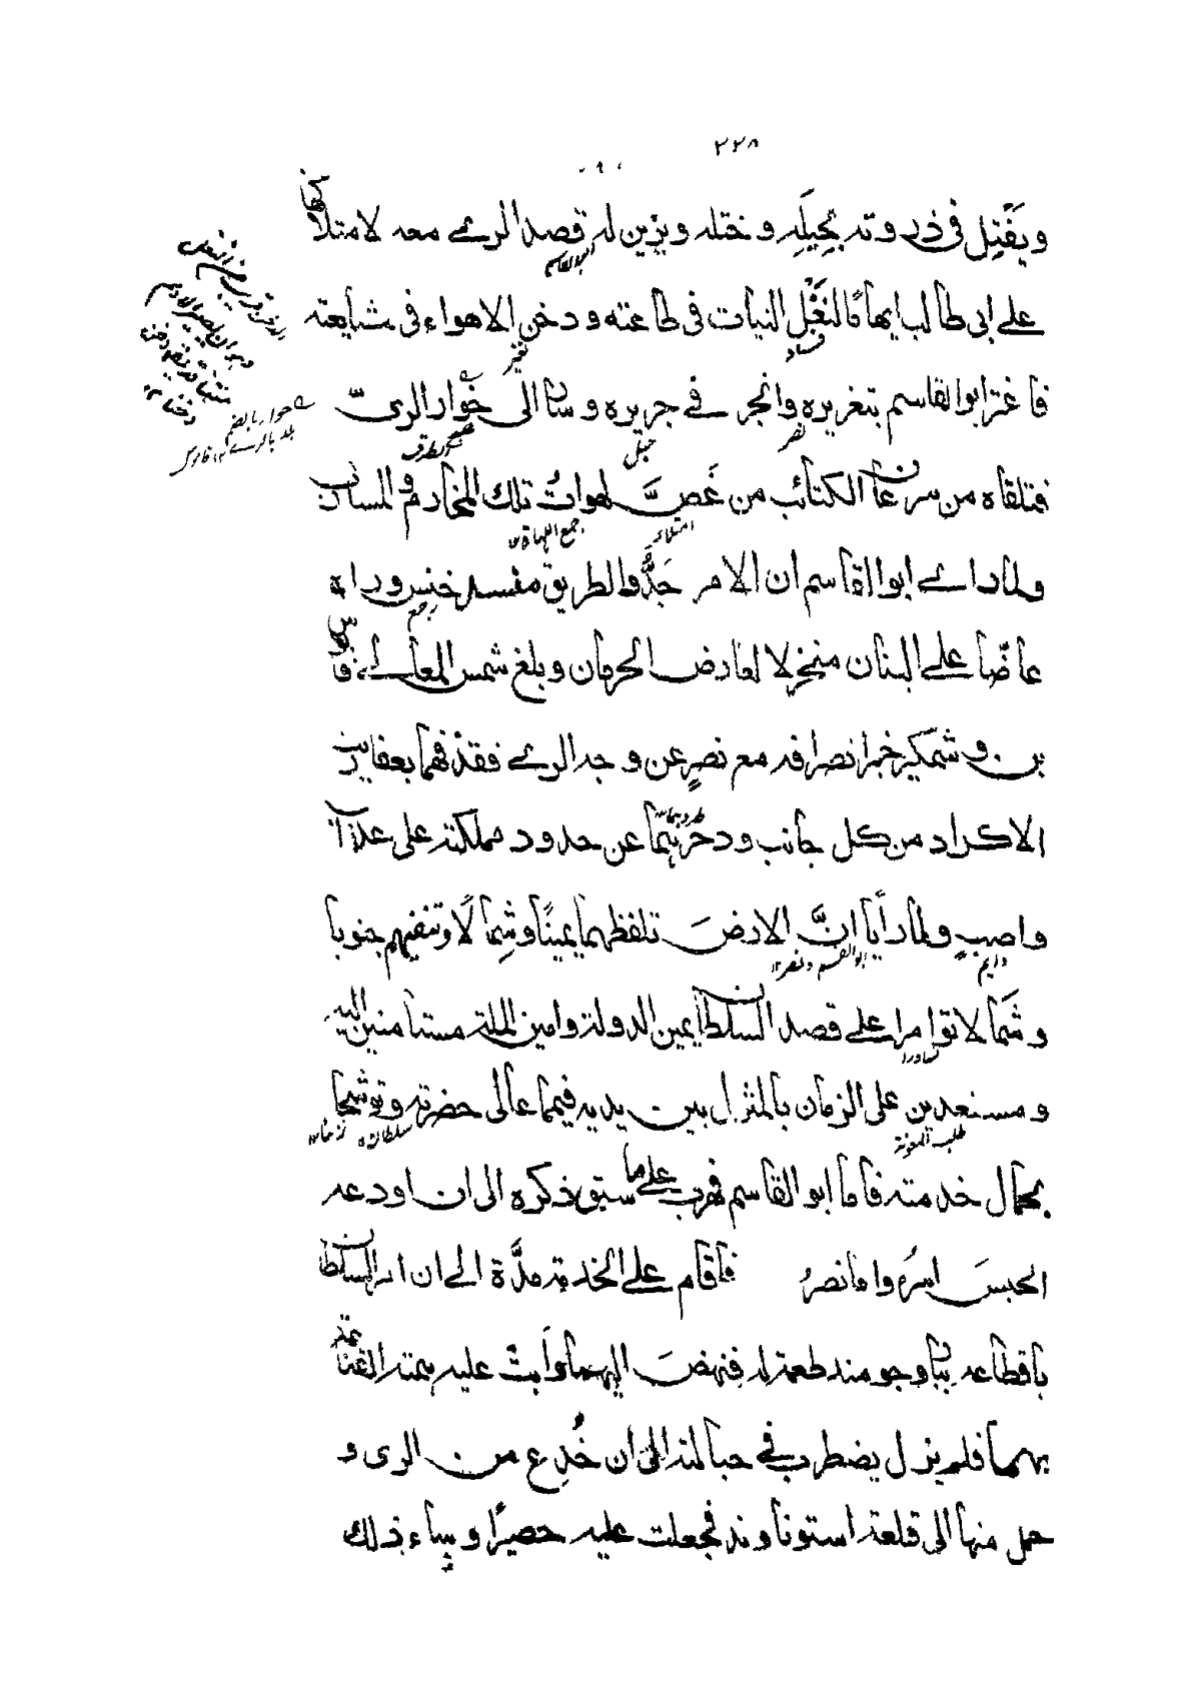 ٢٢٨
ويَفْتِل فى ذروته بحِيَلِه وختله ويزين له قصد الرى معه لامتلاكها
ابو القاسم
على ابى طالب ايهامًا لنغَل النيات فى طاعته ودخن الاهواء فى مشايعته
فساد
تغير
فاغتر ابو القاسم بتغريره وانجر فى جريره وسارا الى خُوار الرىّ
نصر
حبل
فتلقاه من سرعان الكتائب من غَصَّ لهواتُ تلك المخارم والمسارب
امتلاء
جمع اللهاة
ولما راى ابو القاسم ان الامر جَدٌّ والطريق منسد خنس وراءه
رجع
عاضًّا على البنان منخزلا لعارض الحرمان وبلغ شمس المعالى قابوس
بن وشمكير خبر انصرافه مع نصرٍ عن وجه الرى فقذفهما بعفاريت
الاكراد من كل جانب ودحرتهما عن حدود مملكته على عذاب
واصبٍ ولما رأَيا انَّ الارضَ تلفظهما يمينًا وشِمالًا وتنفيهم جنوبا
دايم
ابو القسم ونصر ١٢
وشَمالا توامرا على قصد السلطان يمين الدولة وامين الملة مستامنين اليه
تشاورا
ومستعدين على الزمان بالمثول بين يديه فيمما عالى حضرته وتوشحا
طلب المعونة
سلطان
بجمال خدمته فاما ابو القاسم فهرب على ما سبق ذكره الى ان اودعه
الحبسَ اسرُه واما نصرُ فاقام على الخدمة مدَّة الى ان امر السلطان
باقطاعه بيار وجومند طعمة له فنهضَ اليهما وابثّ عليه همته القناعة
بهما فلم يزل يضطرب فى حبالته الى ان خُدِع من الرى و
حمل منها الى قلعة استوناوند فجعلت عليه حصيرًا وساء بذلك
خوار بالضم
بلد بالرى ١٢ قاموس